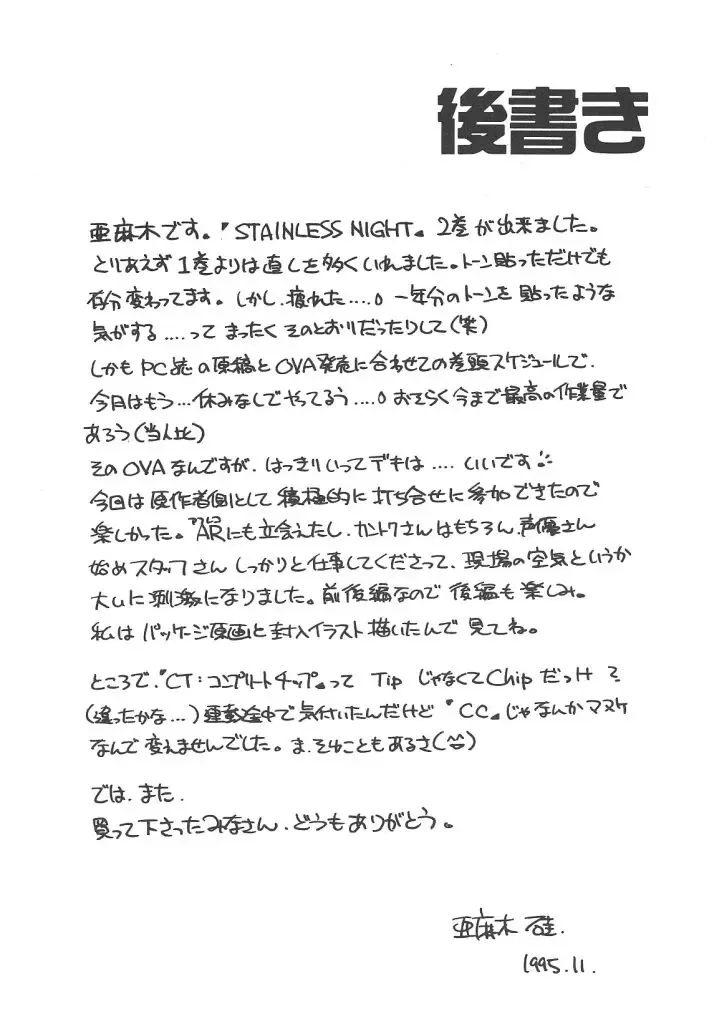 後書き
亜麻木です。『STAINLESS NIGHT』2巻が出来ました。
とりあえず1巻よりは直しを多くいれました。トーン貼っただけでも
存分変わってます。しかし、疲れた....。一年分のトーンを貼ったような
気がする....って まったく そのとおりだったりして(笑)
しかもPC誌の原稿とOVA発売に合わせての巻頭スケジュールで、
今月はもう...休みなしでやってるう....。おそらく今まで最高の作業量で
あろう(当人比)
そのOVAなんですが、はっきりいってデキは....いいです
今回は原作者側として積極的に打ち合せに参加できたので
楽しかった。ARにも立会えたし、カントクさんはもちろん、声優さん
始めスタッフさんしっかりと仕事してくださって、現場の空気というか
大いに刺激になりました。前後編なので後編も楽しみ。
私はパッケージ原画と封入イラスト描いたんで見てね。
ところで、『CT:コンプリートチップ』って TipじゃなくてChipだっけ?
(違ったかな...)運転途中で気付いたんだけど『CC』じゃなんかマヌケ
なんで変えませんでした。ま、そんなこともあるさ(^^)
では、また、
買って下さったみなさん、どうもありがとう。
亜麻木 硅.
1995.11.